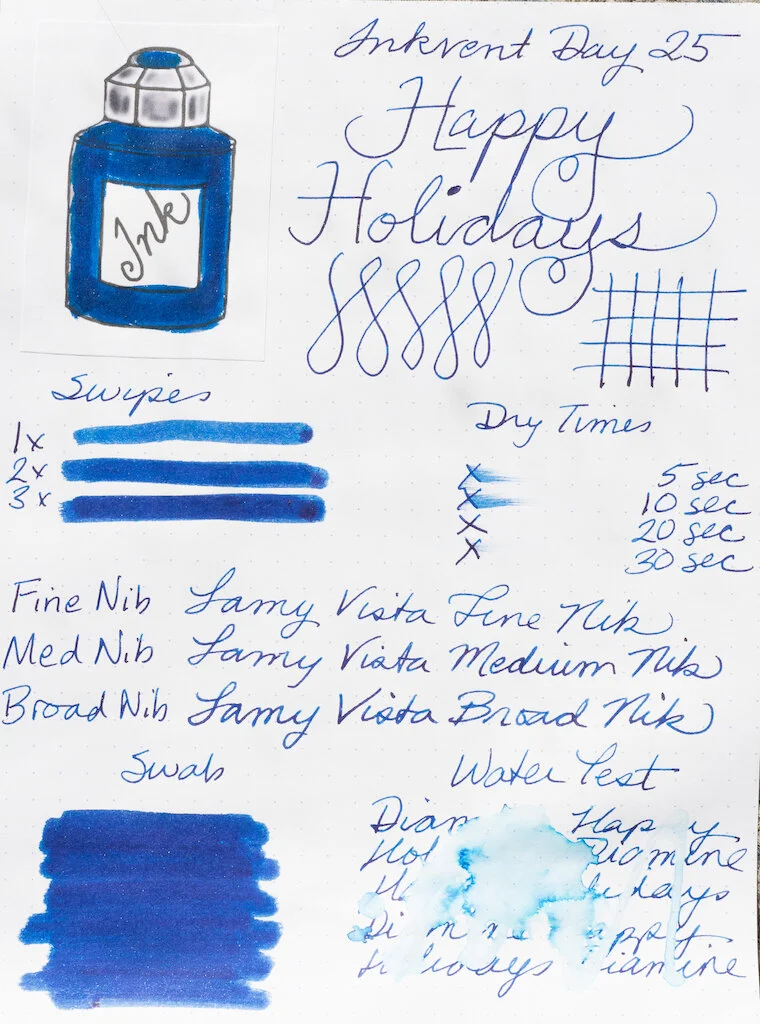 Inkvent Day 25
Happy
Holidays
Ink
Swipes
1x
2x
3x
Dry Times
x 5 sec
x 10 sec
x 20 sec
x 30 sec
Fine Nib Lamy Vista Fine Nib
Med Nib Lamy Vista Medium Nib
Broad Nib Lamy Vista Broad Nib
Swab
Water Test
Happy
Diamine
Diamine